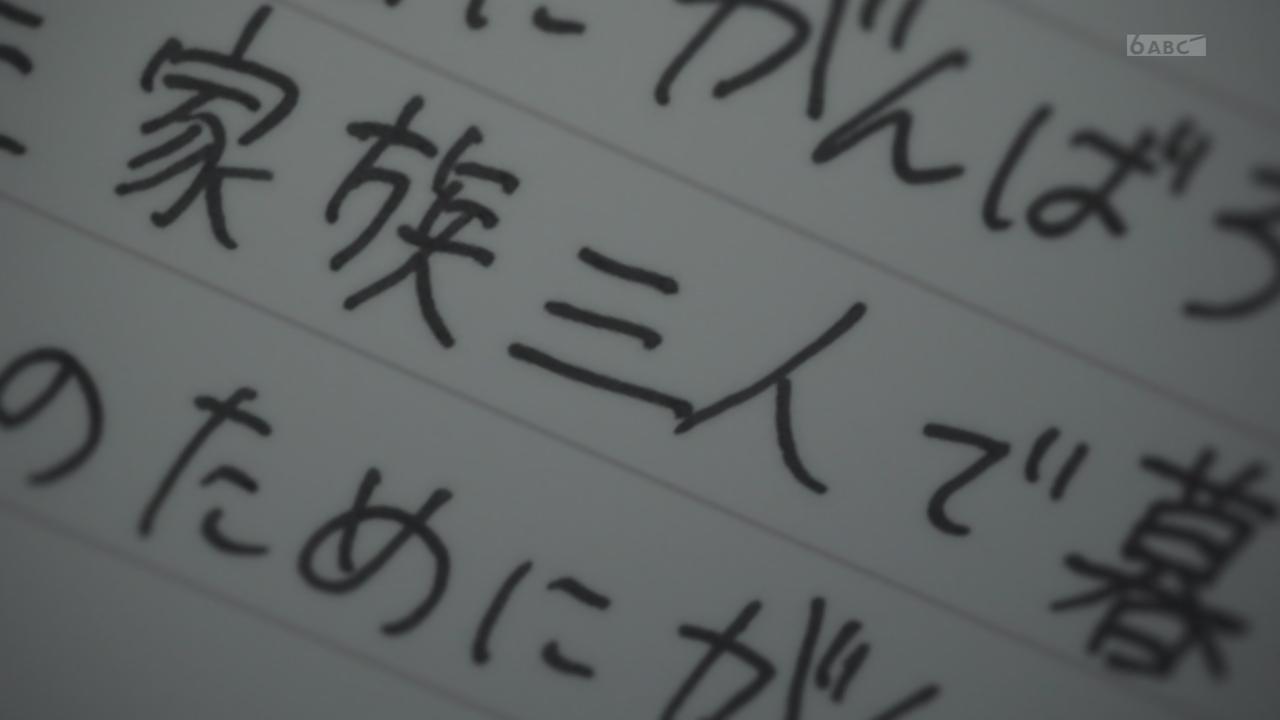 にがんばろ
家族三人で暮
のためにが
6 ABC